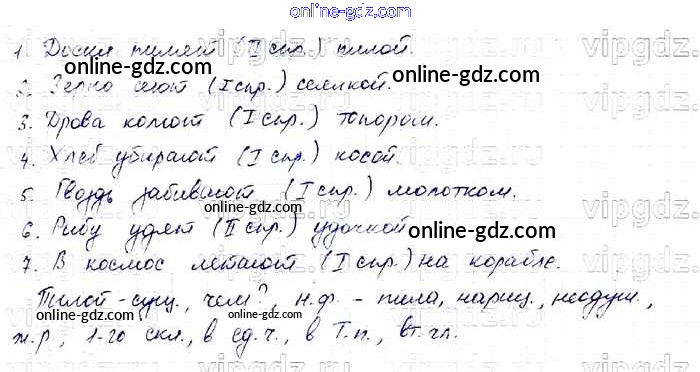 online-gdz.com
1. Доски пилят (II спр.) пилой.
online-gdz.com
online-gdz.com
2. Зерно сеют (I спр.) сеялкой.
3. Дрова колют (I спр.) топором.
4. Хлеб убирают (I спр.) косой.
online-gdz.com
5. Гвоздь забивают (I спр.) молотком.
online-gdz.com
6. Рыбу удят (II спр.) удочкой
online-gdz.com
7. В космос летают (I спр.) на корабле.
online-gdz.com
Пилой - сущ., чем?, н.ф. - пила, нариц., неодуш.,
ж.р., 1-го скл., в ед.ч., в Т.п., вт. чл.
vipgdz
vipgdz
vipgdz
vipgdz